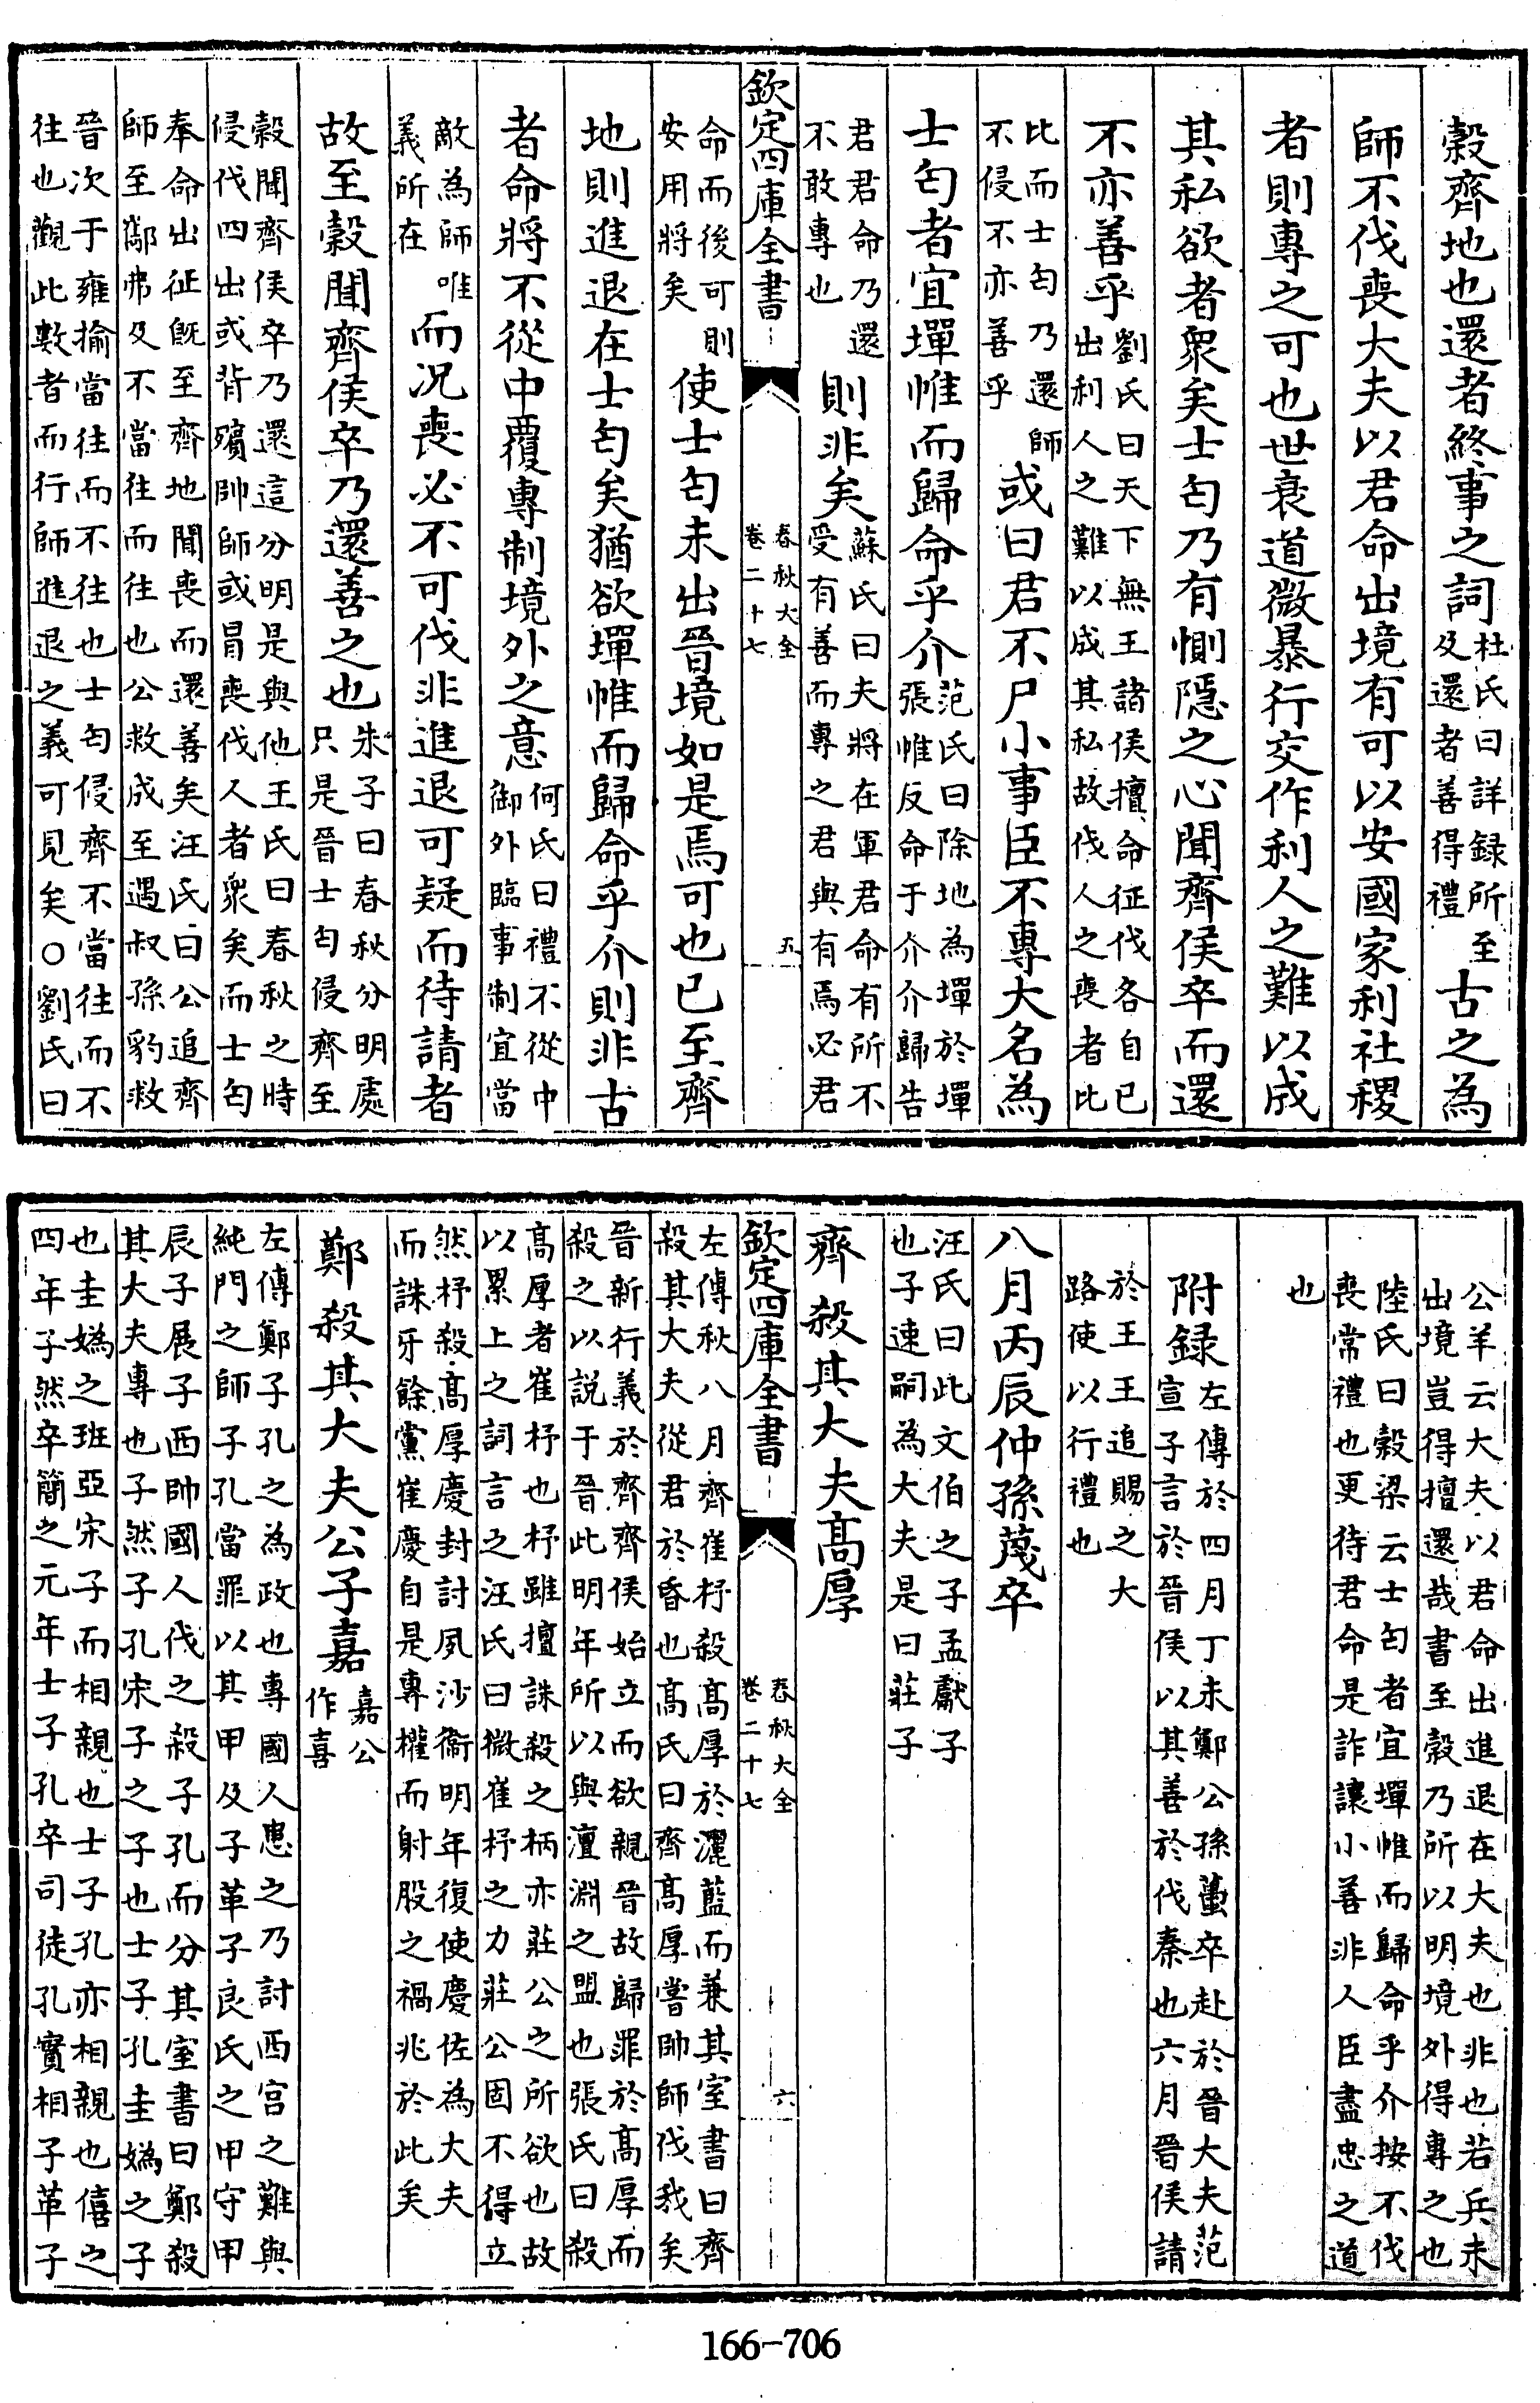 穀齊地也還者終事之詞杜氏曰詳録所至及還者善得禮古之為
師不伐喪大夫以君命出境有可以安國家利社稷
者則專之可也世衰道微暴行交作利人之難以成
其私欲者衆矣士匄乃有惻隱之心聞齊侯卒而還
不亦善乎劉氏曰天下無王諸侯擅命征伐各自已出利人之難以成其私故伐人之喪者比
比而士匄乃還師不侵不亦善乎或曰君不尸小事臣不專大名為
士匄者宜墠帷而歸命乎介范氏曰除地為墠於墠張帷反命于介介歸告
君君命乃還不敢專也則非矣蘇氏曰夫將在軍君命有所不受有善而專之君與有焉必君
欽定四庫全書 春秋大全 卷二十七 五
命而後可則安用將矣使士匄未出晉境如是焉可也已至齊
地則進退在士匄矣猶欲墠帷而歸命乎介則非古
者命將不從中覆專制境外之意何氏曰禮不從中御外臨事制宜當
敵為師唯義所在而况喪必不可伐非進退可疑而待請者
故至穀聞齊侯卒乃還善之也朱子曰春秋分明處只是晉士匄侵齊至
穀聞齊侯卒乃還這分明是與他王氏曰春秋之時
侵伐四出或背殯帥師或冒喪伐人者衆矣而士匄
奉命出征旣至齊地聞喪而還善矣汪氏曰公追齊
師至酅弗及不當往而往也公救成至遇叔孫豹救
晉次于雍揄當往而不往也士匄侵齊不當往而不
往也觀此數者而行師進退之義可見矣○劉氏曰
公羊云大夫以君命出進退在大夫也非也若兵未
出境豈得擅還哉書至穀乃所以明境外得專之也
陸氏曰穀梁云士匄者宜墠帷而歸命乎介按不伐
喪常禮也更待君命是詐讓小善非人臣盡忠之道
也
附録左傳於四月丁未鄭公孫蠆卒赴於晉大夫范宣子言於晉侯以其善於伐秦也六月晉侯請
於王王追賜之大
路使以行禮也
八月丙辰仲孫蔑卒
汪氏曰此文伯之子孟獻子
也子速嗣為大夫是曰莊子
齊殺其大夫高厚
欽定四庫全書 春秋大全 卷二十七 六
左傳秋八月齊崔杼殺高厚於灑藍而兼其室書曰齊
殺其大夫從君於昏也高氏曰齊高厚嘗帥師伐我矣
晉新行義於齊齊侯始立而欲親晉故歸罪於高厚而
殺之以説于晉此明年所以與澶淵之盟也張氏曰殺
高厚者崔杼也杼雖擅誅殺之柄亦莊公之所欲也故
以累上之詞言之汪氏曰微崔杼之力莊公固不得立
然杼殺高厚慶封討夙沙衞明年復使慶佐為大夫
而誅牙餘黨崔慶自是專權而射股之禍兆於此矣
鄭殺其大夫公子嘉嘉公作喜
左傳鄭子孔之為政也專國人患之乃討西宫之難與
純門之師子孔當罪以其甲及子革子良氏之甲守甲
辰子展子西帥國人伐之殺子孔而分其室書曰鄭殺
其大夫專也子然子孔宋子之子也士子孔圭媯之子
也圭媯之班亞宋子而相親也士子孔亦相親也僖之
四年子然卒簡之元年士子孔卒司徒孔實相子革子
166-706